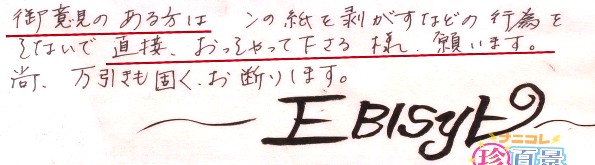 御意見のある方は ンの紙を剥がすなどの行為を
しないで直接、おっしゃって下さる様、願います。
尚、万引きも固くお断りします。
EBISyt
ナニコレ
珍百景